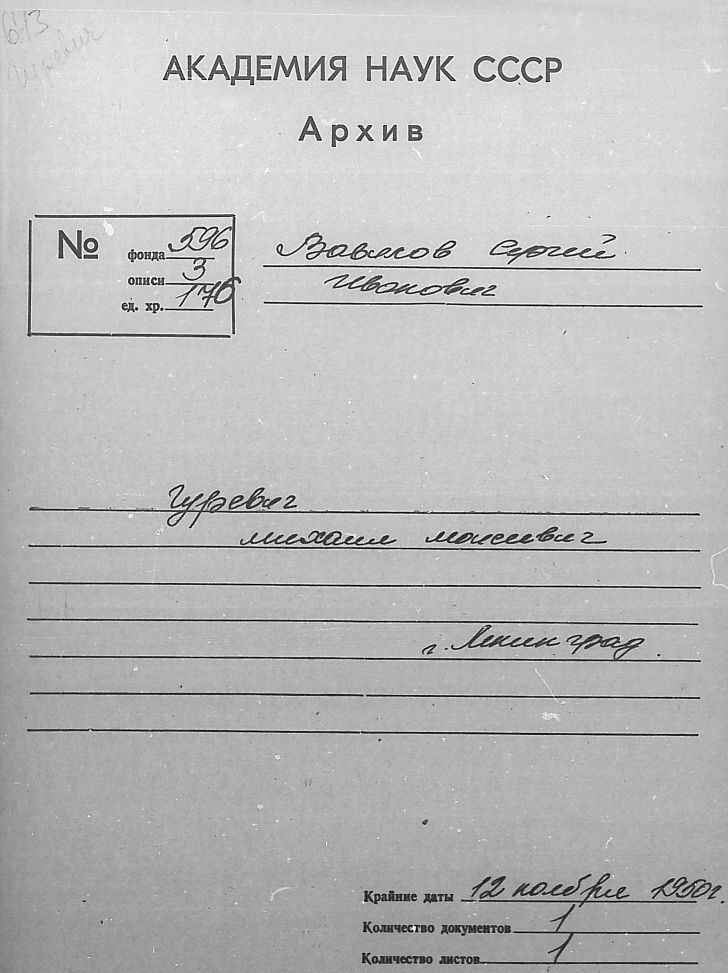 613
Гуревич
АКАДЕМИЯ НАУК СССР
Архив
№
фонда 596
описи 3
ед. хр. 176
Вавилов Сергей
Иванович
Гуревич
Михаил Моисеевич
г. Ленинград.
Крайние даты 12 ноября 1950г.
Количество документов 1
Количество листов 1